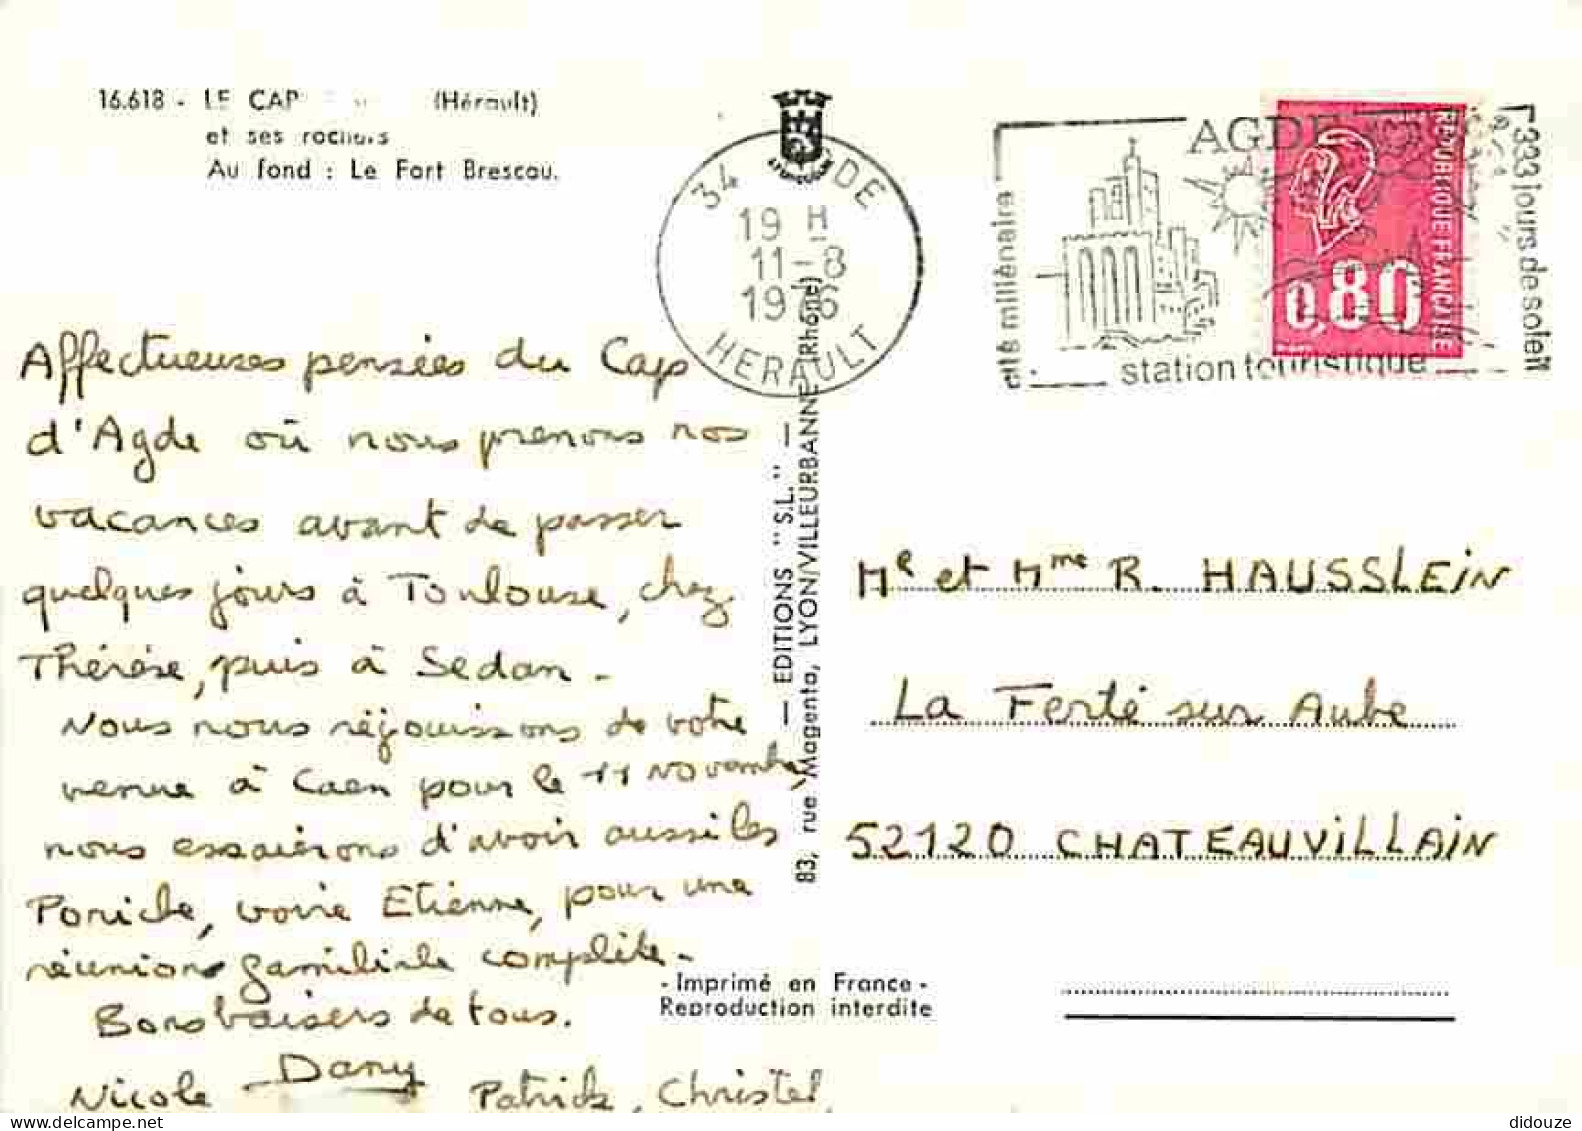 16.618 - LE CAP (Hérault)
et ses rochers
Au fond : Le Fort Brescou.
34 AGDE
19 H
11-8
1976
HERAULT
AGDE
cité millénaire
station touristique
333 jours de soleil
REPUBLIQUE FRANÇAISE
0,80
Affectueuses pensées du Cap
d'Agde où nous prenons nos
vacances avant de passer
quelques jours à Toulouse, chez
Thérèse, puis à Sedan -
Nous nous réjouissons de votre
venue à Caen pour le 11 Novembre,
nous essaierons d'avoir aussi les
, voire Etienne, pour une
réunion familiale complète -
Bons baisers de tous.
Dany
Nicole Patrick, Christel,
— EDITIONS "S.L." —
83, rue Magenta, LYON/VILLEURBANNE (Rhône)
Mr et Mme R. HAUSSLEIN
La Ferté sur Aube
52120 CHATEAUVILLAIN
- Imprimé en France -
Reproduction interdite
didouze